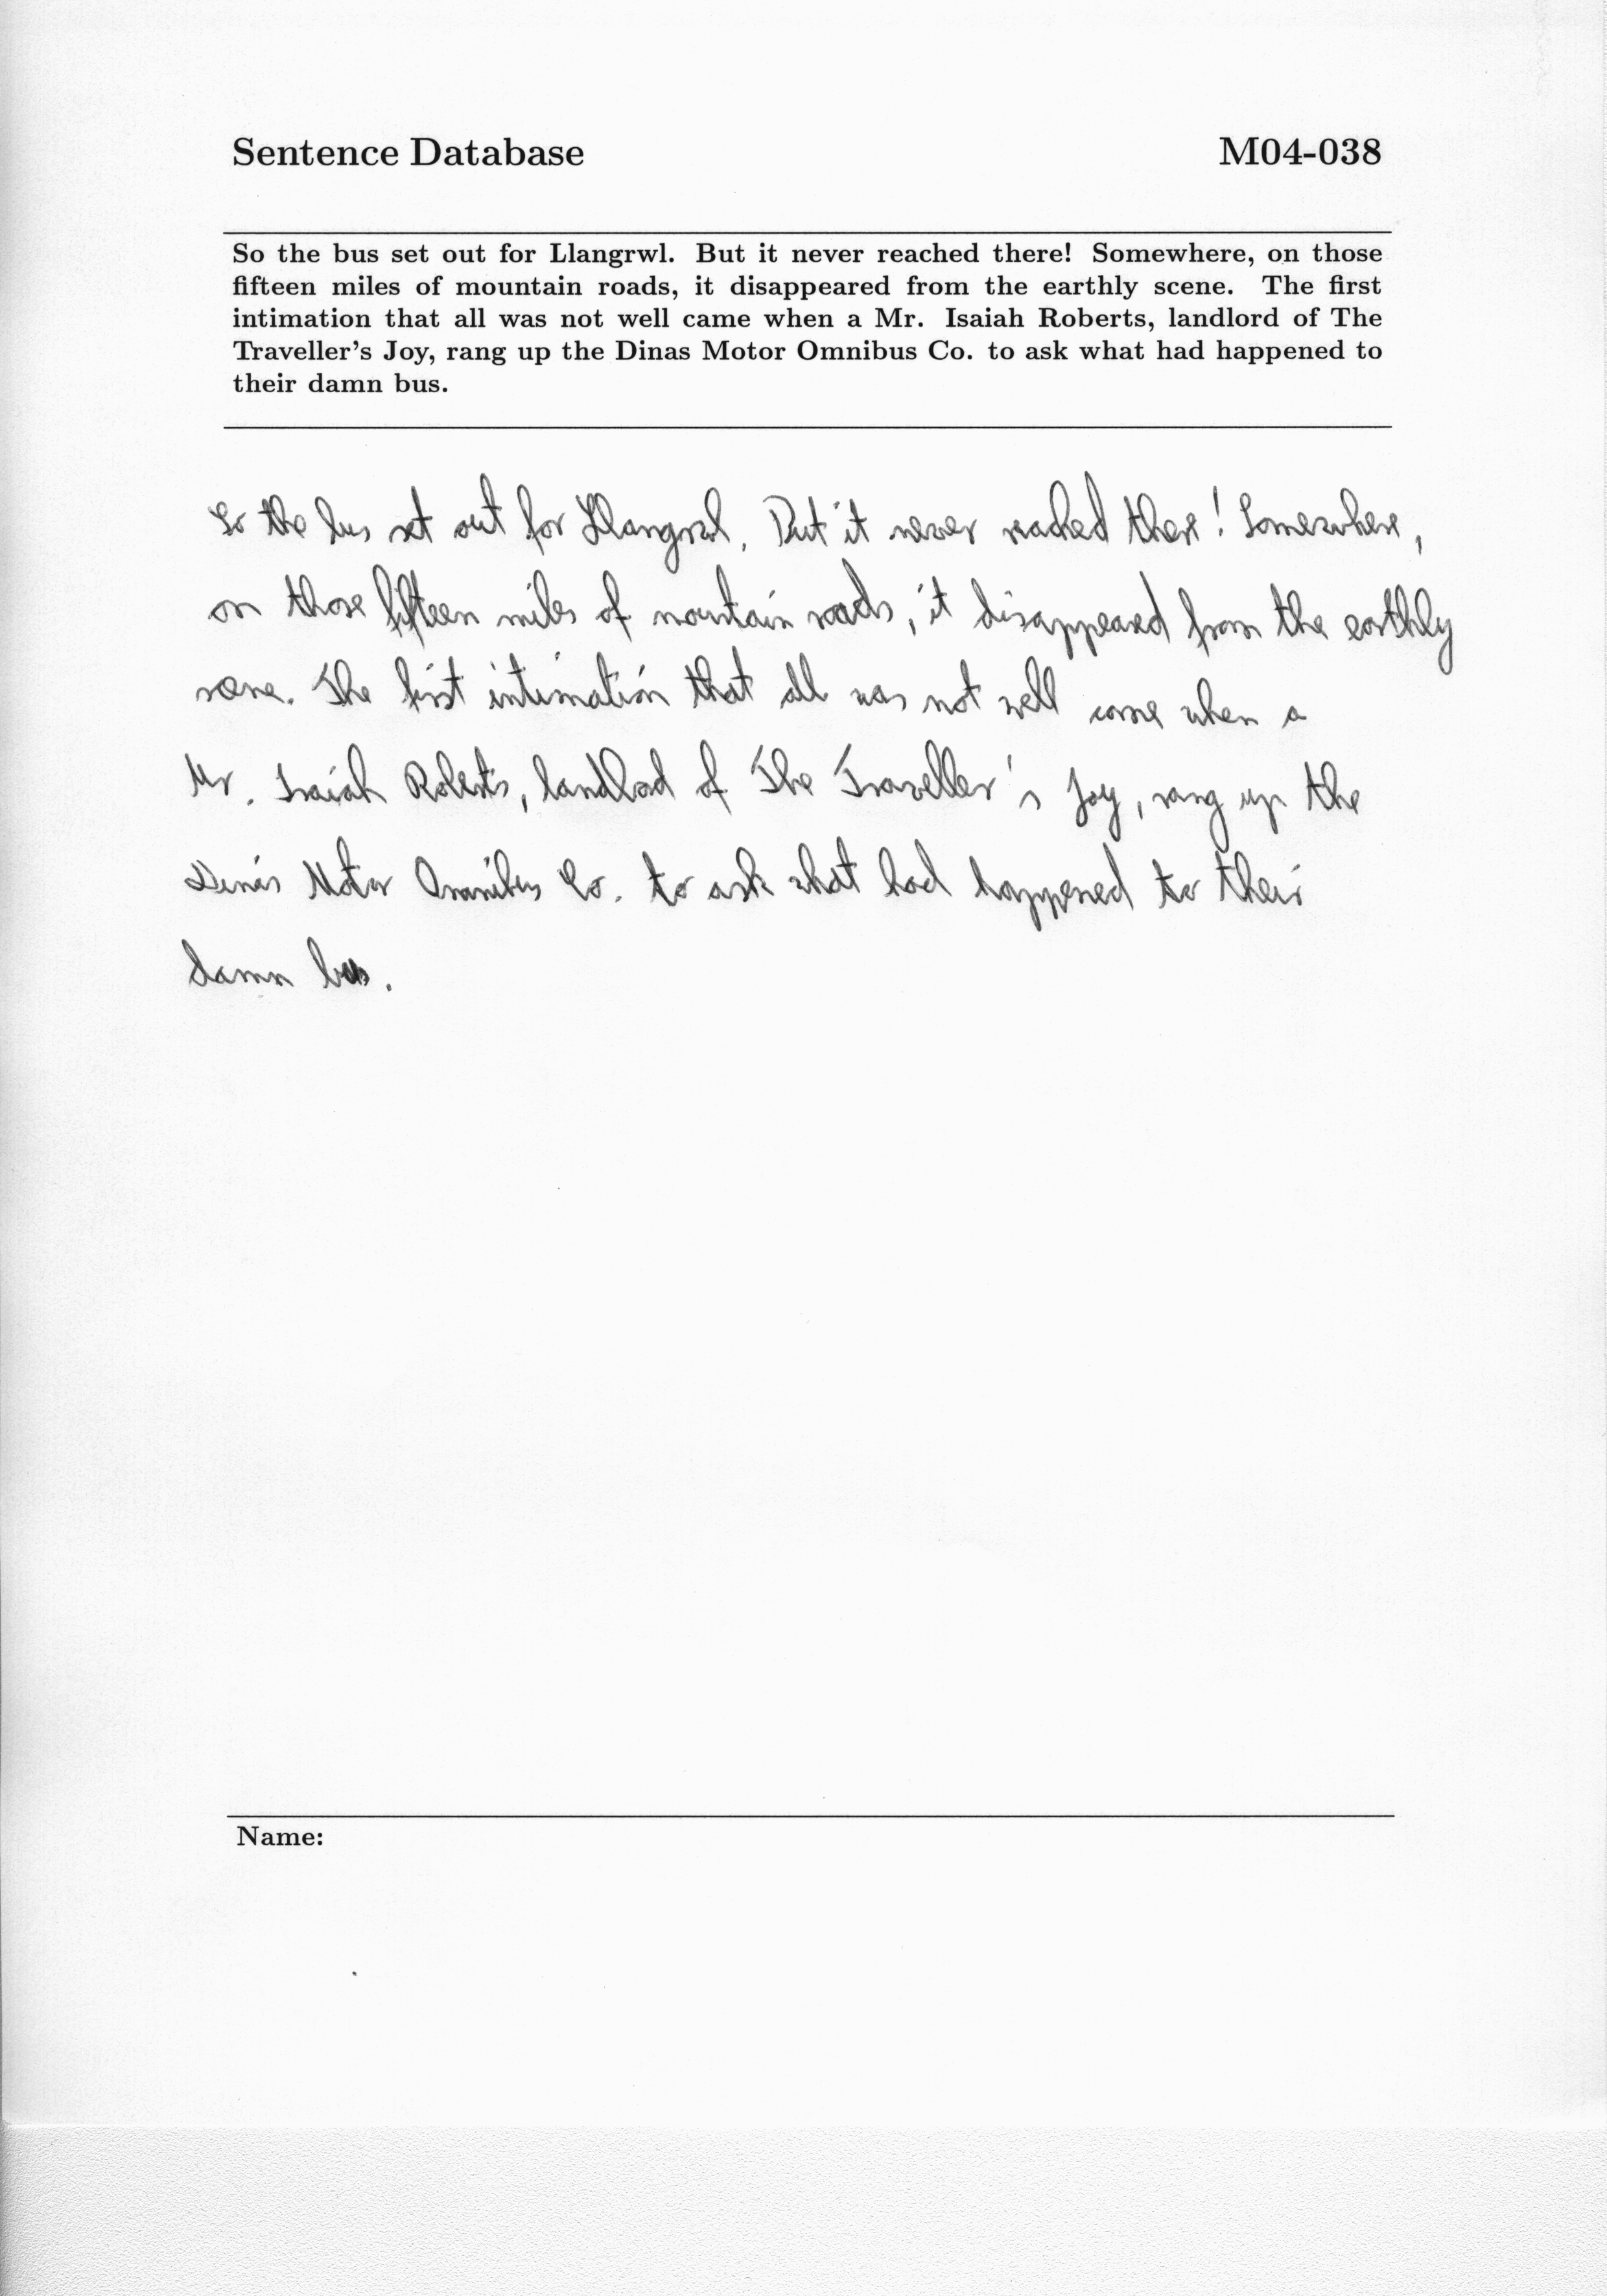 Sentence Database M04-038
So the bus set out for Llangrwl. But it never reached there! Somewhere, on those
fifteen miles of mountain roads, it disappeared from the earthly scene. The first
intimation that all was not well came when a Mr. Isaiah Roberts, landlord of The
Traveller's Joy, rang up the Dinas Motor Omnibus Co. to ask what had happened to
their damn bus.
So the bus set out for Llangrwl. But it never reached there! Somewhere,
on those fifteen miles of mountain roads, it disappeared from the earthly
scene. The first intimation that all was not well came when a
Mr. Isaiah Roberts, landlord of The Traveller's Joy, rang up the
Dinas Motor Omnibus Co. to ask what had happened to their
damn bus.
Name: